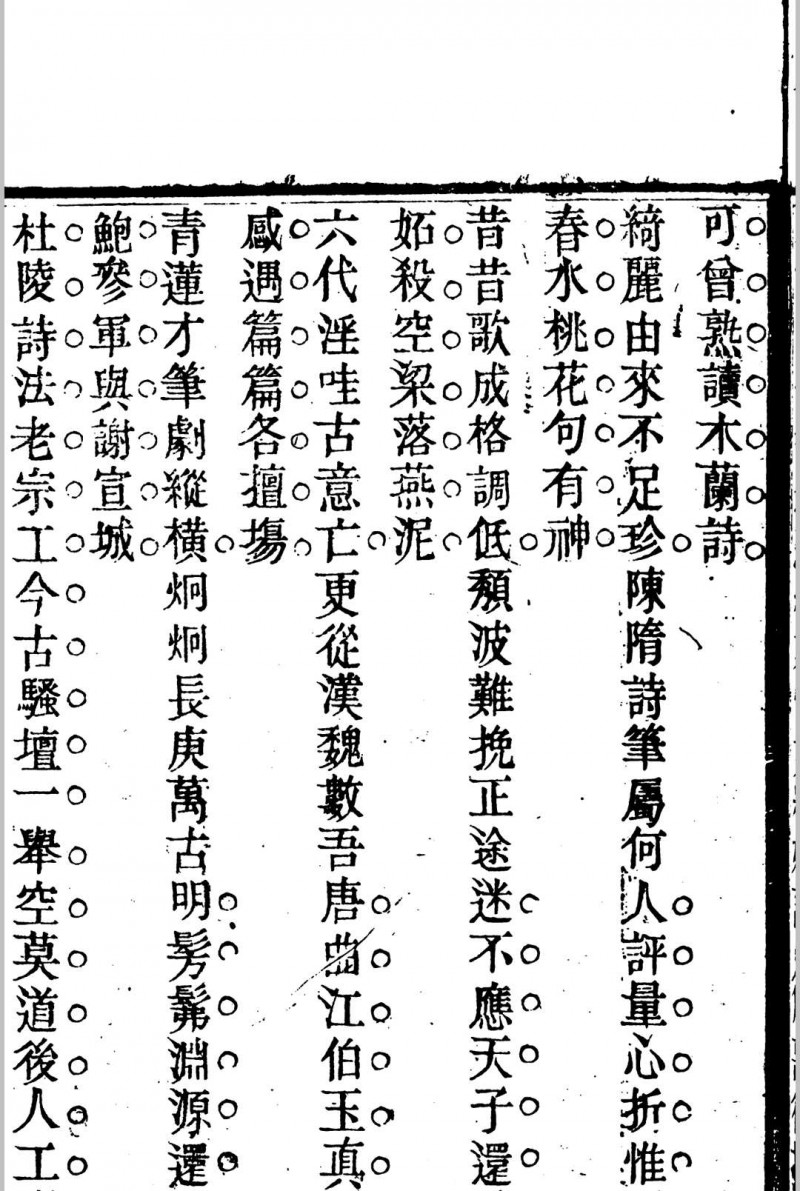 可曾熟讀木蘭詩
綺麗由來不足珍陳隋詩筆屬何人評量心折惟
春水桃花句有神
昔昔歌成格調低頹波難挽正途迷不應天子還
妬殺空梁落燕泥
六代淫哇古意亡更從漢魏數吾唐曲江伯玉真
感遇篇篇各擅塲
青蓮才筆劇縱橫炯炯長庚萬古明髣髴淵源還
鮑參軍與謝宣城
杜陵詩法老宗工今古騷壇一舉空莫道後人工